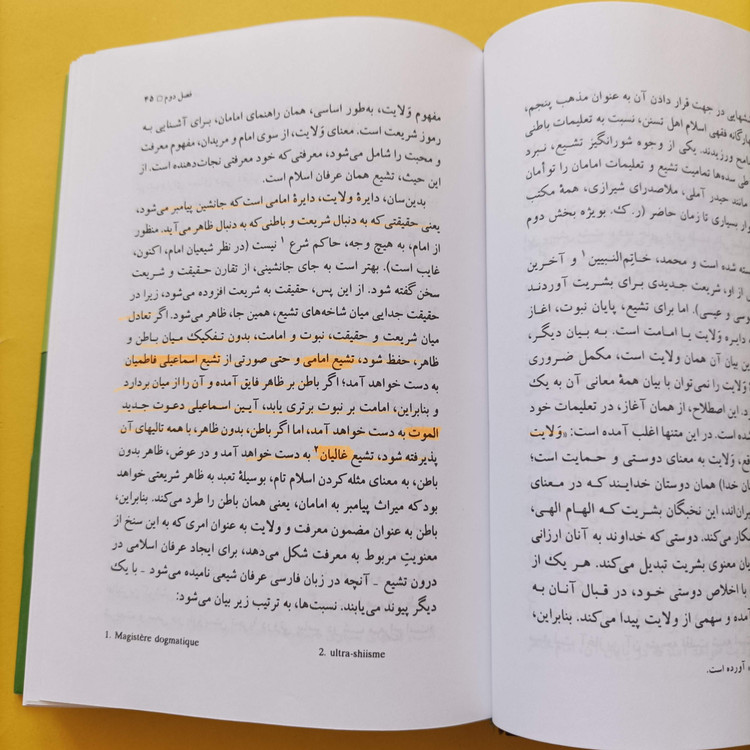 در جهت قرار دادن آن به عنوان مذهب پنجم،
فقهی اسلام اهل تسنن، نسبت به تعلیمات باطنی
ورزیدند. یکی از وجوه شورانگیز تشیع، نبرد
سده‌ها تمامیت تشیع و تعلیمات امامان را توأمان
مانند حیدر آملی، ملاصدرای شیرازی، همهٔ مکتب
بسیاری تا زمان حاضر (ر.ک. بویژه بخش دوم
شده است و محمد، خاتم‌النبیین ۱ و آخرین
از او، شریعت جدیدی برای بشریت آوردند
و عیسی). اما برای تشیع، پایان نبوت، آغاز
دایره وَلایت یا امامت است. به بیان دیگر،
بیان آن همان ولایت است، مکمل ضروری
وَلایت را نمی‌توان با بیان همهٔ معانی آن به یک
این اصطلاح، از همان آغاز، در تعلیمات خود
در این متنها اغلب آمده است: «وَلایت
وَلایت به معنای دوستی و حمایت است؛
خدا) همان دوستان خدایند که در معنای
این نخبگان بشریت که الهام الهی،
می‌کند. دوستی که خداوند به آنان ارزانی
معنوی بشریت تبدیل می‌کند. هر یک از
با اخلاص دوستی خود، در قبال آنان به
آمده و سهمی از ولایت پیدا می‌کند. بنابراین،
آورده است.
فصل دوم □ ۴۵
مفهوم وَلایت، به‌طور اساسی، همان راهنمای امامان، برای آشنایی به
رموز شریعت است. معنای وَلایت، از سوی امام و مریدان، مفهوم معرفت
و محبت را شامل می‌شود، معرفتی که خود معرفتی نجات‌دهنده است. از
این حیث، تشیع همان عرفان اسلام است.
بدین‌سان، دایرهٔ ولایت، دایرهٔ امامی است که جانشین پیامبر می‌شود،
یعنی حقیقتی که به دنبال شریعت و باطنی که به دنبال ظاهر می‌آید. منظور
از امام، به هیچ وجه، حاکم شرع ۱ نیست (در نظر شیعیان امام، اکنون،
غایب است). بهتر است به جای جانشینی، از تقارن حقیقت و شریعت
سخن گفته شود. از این پس، حقیقت به شریعت افزوده می‌شود، زیرا در
حقیقت جدایی میان شاخه‌های تشیع، همین جا، ظاهر می‌شود. اگر تعادل
میان شریعت و حقیقت، نبوت و امامت، بدون تفکیک میان باطن و
ظاهر، حفظ شود، تشیع امامی و حتی صورتی از تشیع اسماعیلی فاطمیان
به دست خواهد آمد؛ اگر باطن بر ظاهر فایق آمده و آن را از میان بردارد
و بنابراین، امامت بر نبوت برتری یابد، آیین اسماعیلی دعوت جدید
الموت به دست خواهد آمد، اما اگر باطن، بدون ظاهر، با همه تالیهای آن
پذیرفته شود، تشیع غالیان ۲ به دست خواهد آمد و در عوض، ظاهر بدون
باطن، به معنای مثله کردن اسلام تام، بوسیلهٔ تعبد به ظاهر شریعتی خواهد
بود که میراث پیامبر به امامان، یعنی همان باطن را طرد می‌کند. بنابراین،
باطن به عنوان مضمون معرفت و ولایت به عنوان امری که به این سنخ از
معنویتِ مربوط به معرفت شکل می‌دهد، برای ایجاد عرفان اسلامی در
درون تشیع ـ آنچه در زبان فارسی عرفان شیعی نامیده می‌شود ـ با یک
دیگر پیوند می‌یابند. نسبت‌ها، به ترتیب زیر بیان می‌شود:
1. Magistère dogmatique
2. ultra-shiisme